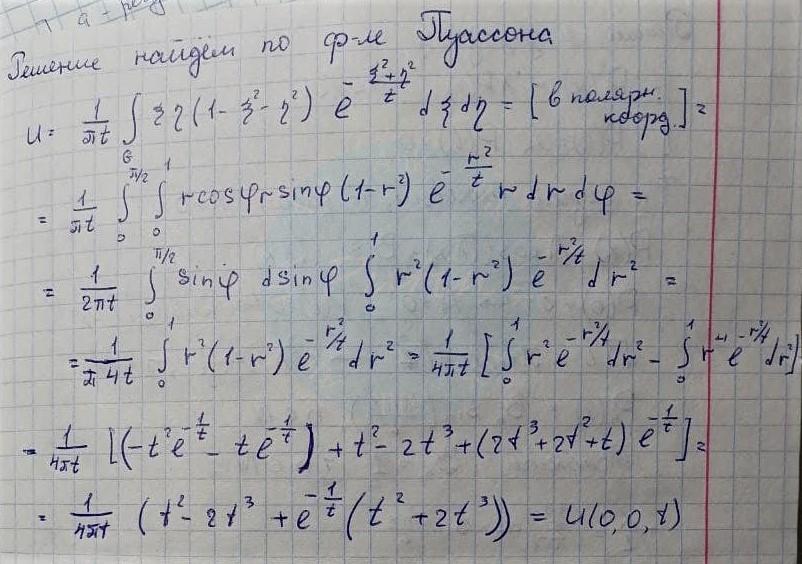 а - резу
Решение найдём по ф-ле Пуассона
u = 1/(πt) ∫_G ξη(1-ξ²-η²) e^(-(ξ²+η²)/t) dξdη = [в полярн. коорд.] =
= 1/(πt) ∫_0^(π/2) ∫_0^1 r cosφ r sinφ (1-r²) e^(-r²/t) r dr dφ =
= 1/(2πt) ∫_0^(π/2) sinφ dsinφ ∫_0^1 r²(1-r²) e^(-r²/t) dr² =
= 1/(π4t) ∫_0^1 r²(1-r²) e^(-r²/t) dr² = 1/(4πt) [∫_0^1 r² e^(-r²/t) dr² - ∫_0^1 r⁴ e^(-r²/t) dr²]
= 1/(4πt) [(-t²e^(-1/t) - te^(-1/t)) + t² - 2t³ + (2t³+2t²+t) e^(-1/t)] =
= 1/(4πt) (t² - 2t³ + e^(-1/t)(t² + 2t³)) = U(0,0,t)